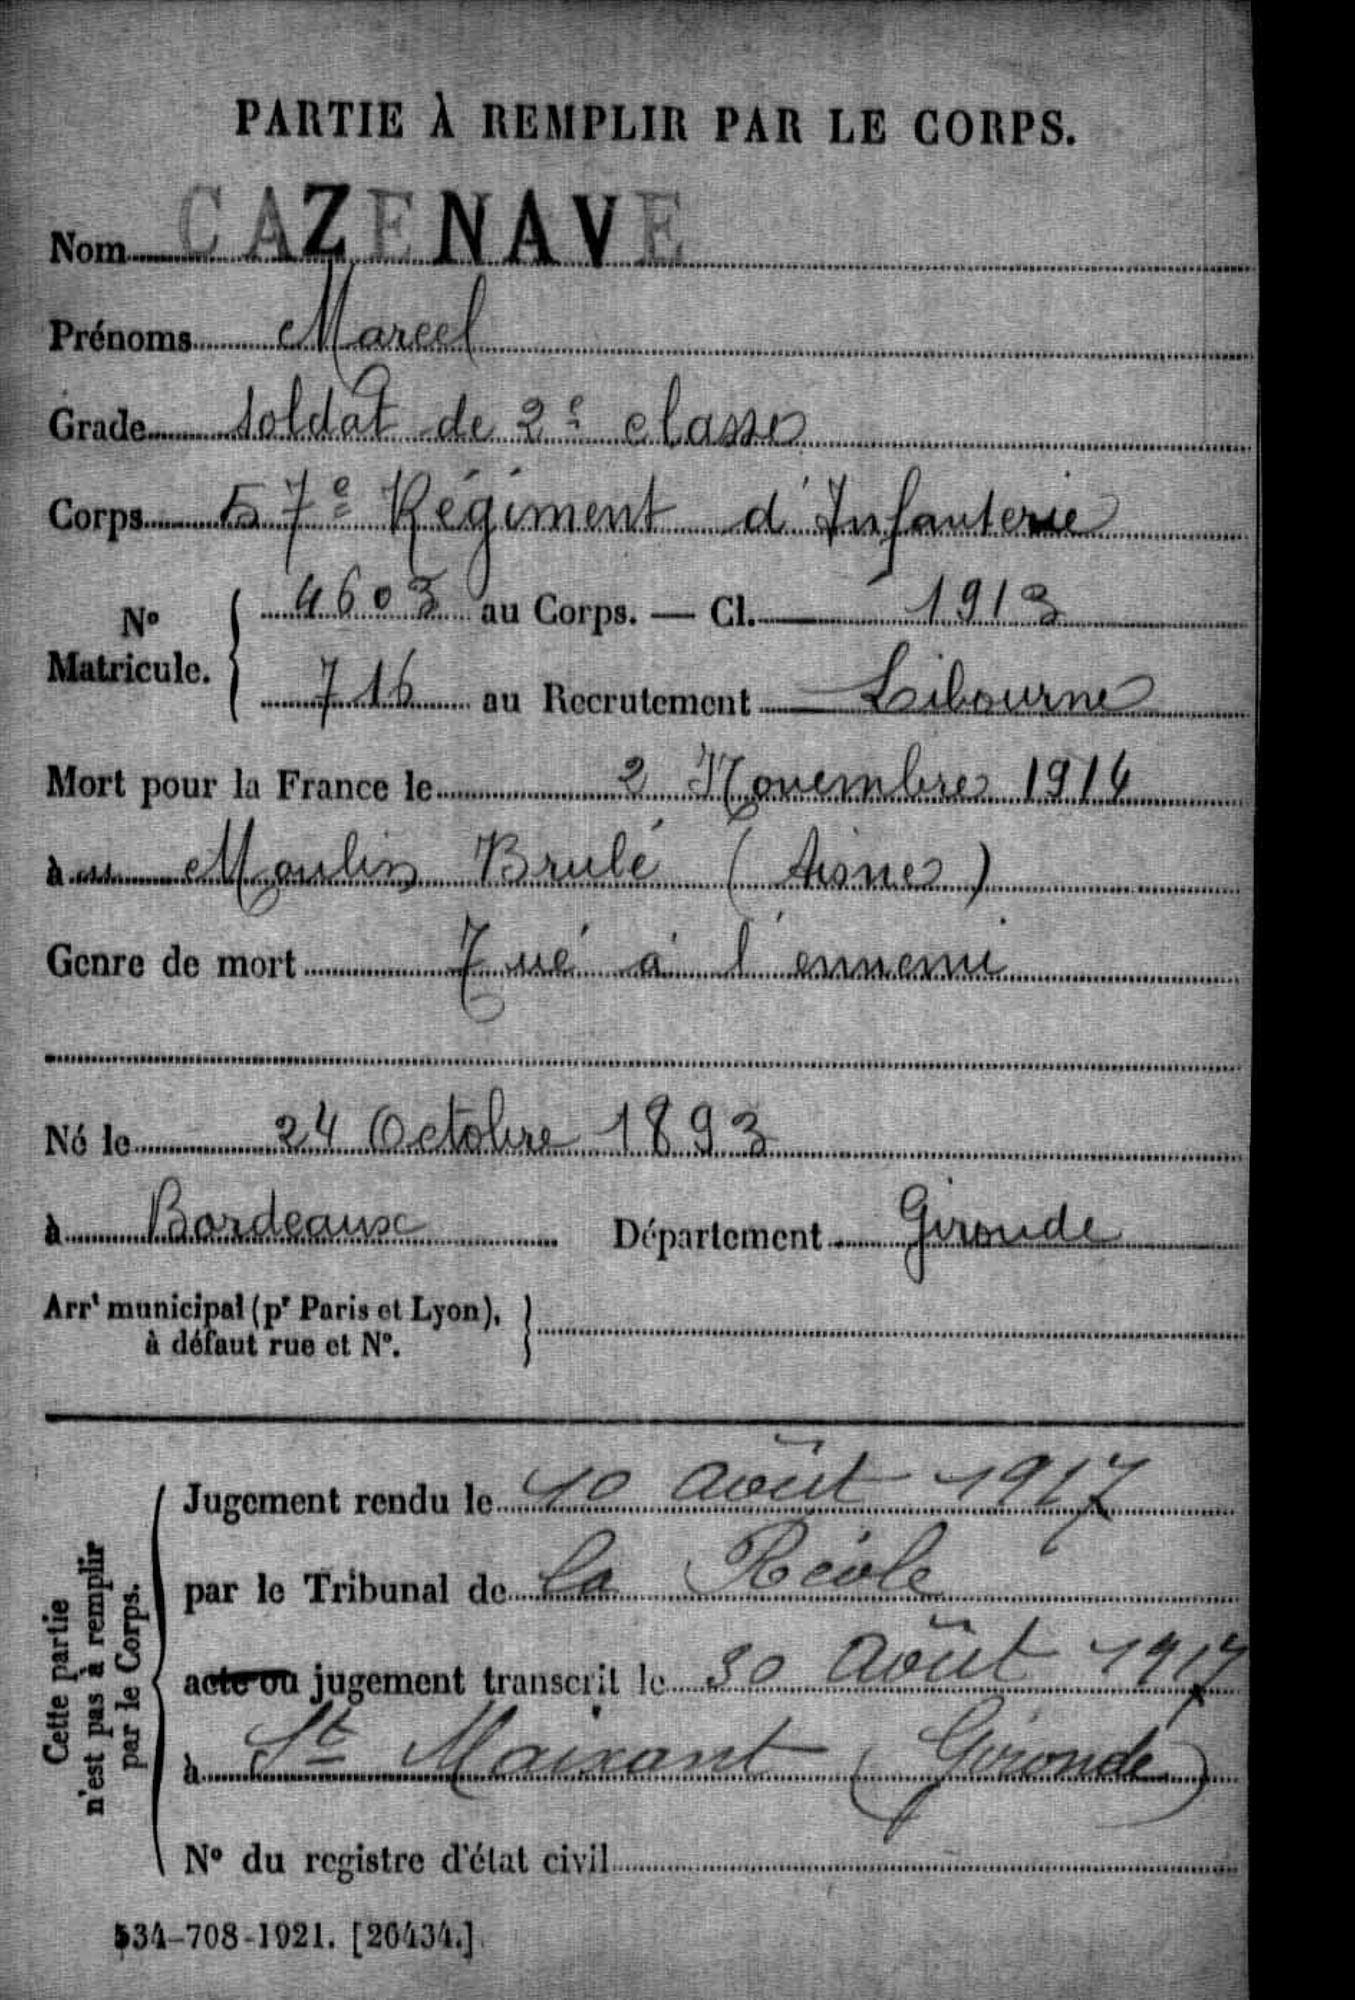 PARTIE À REMPLIR PAR LE CORPS.
Nom CAZENAVE
Prénoms Marcel
Grade soldat de 2e classe
Corps 57e Régiment d'Infanterie
No Matricule. { 4603 au Corps. — Cl. 1913
716 au Recrutement Libourne
Mort pour la France le 2 Novembre 1914
à au Moulin Brulé (Aisne)
Genre de mort Tué à l'ennemi
Né le 24 Octobre 1893
à Bordeaux Département Gironde
Arrt municipal (pr Paris et Lyon),
à défaut rue et No.
Cette partie
n'est pas à remplir
par le Corps.
Jugement rendu le 10 Août 1917
par le Tribunal de La Réole
acte ou jugement transcrit le 30 Août 1917
à St Maixant (Gironde)
No du registre d'état civil
534-708-1921. [26434.]